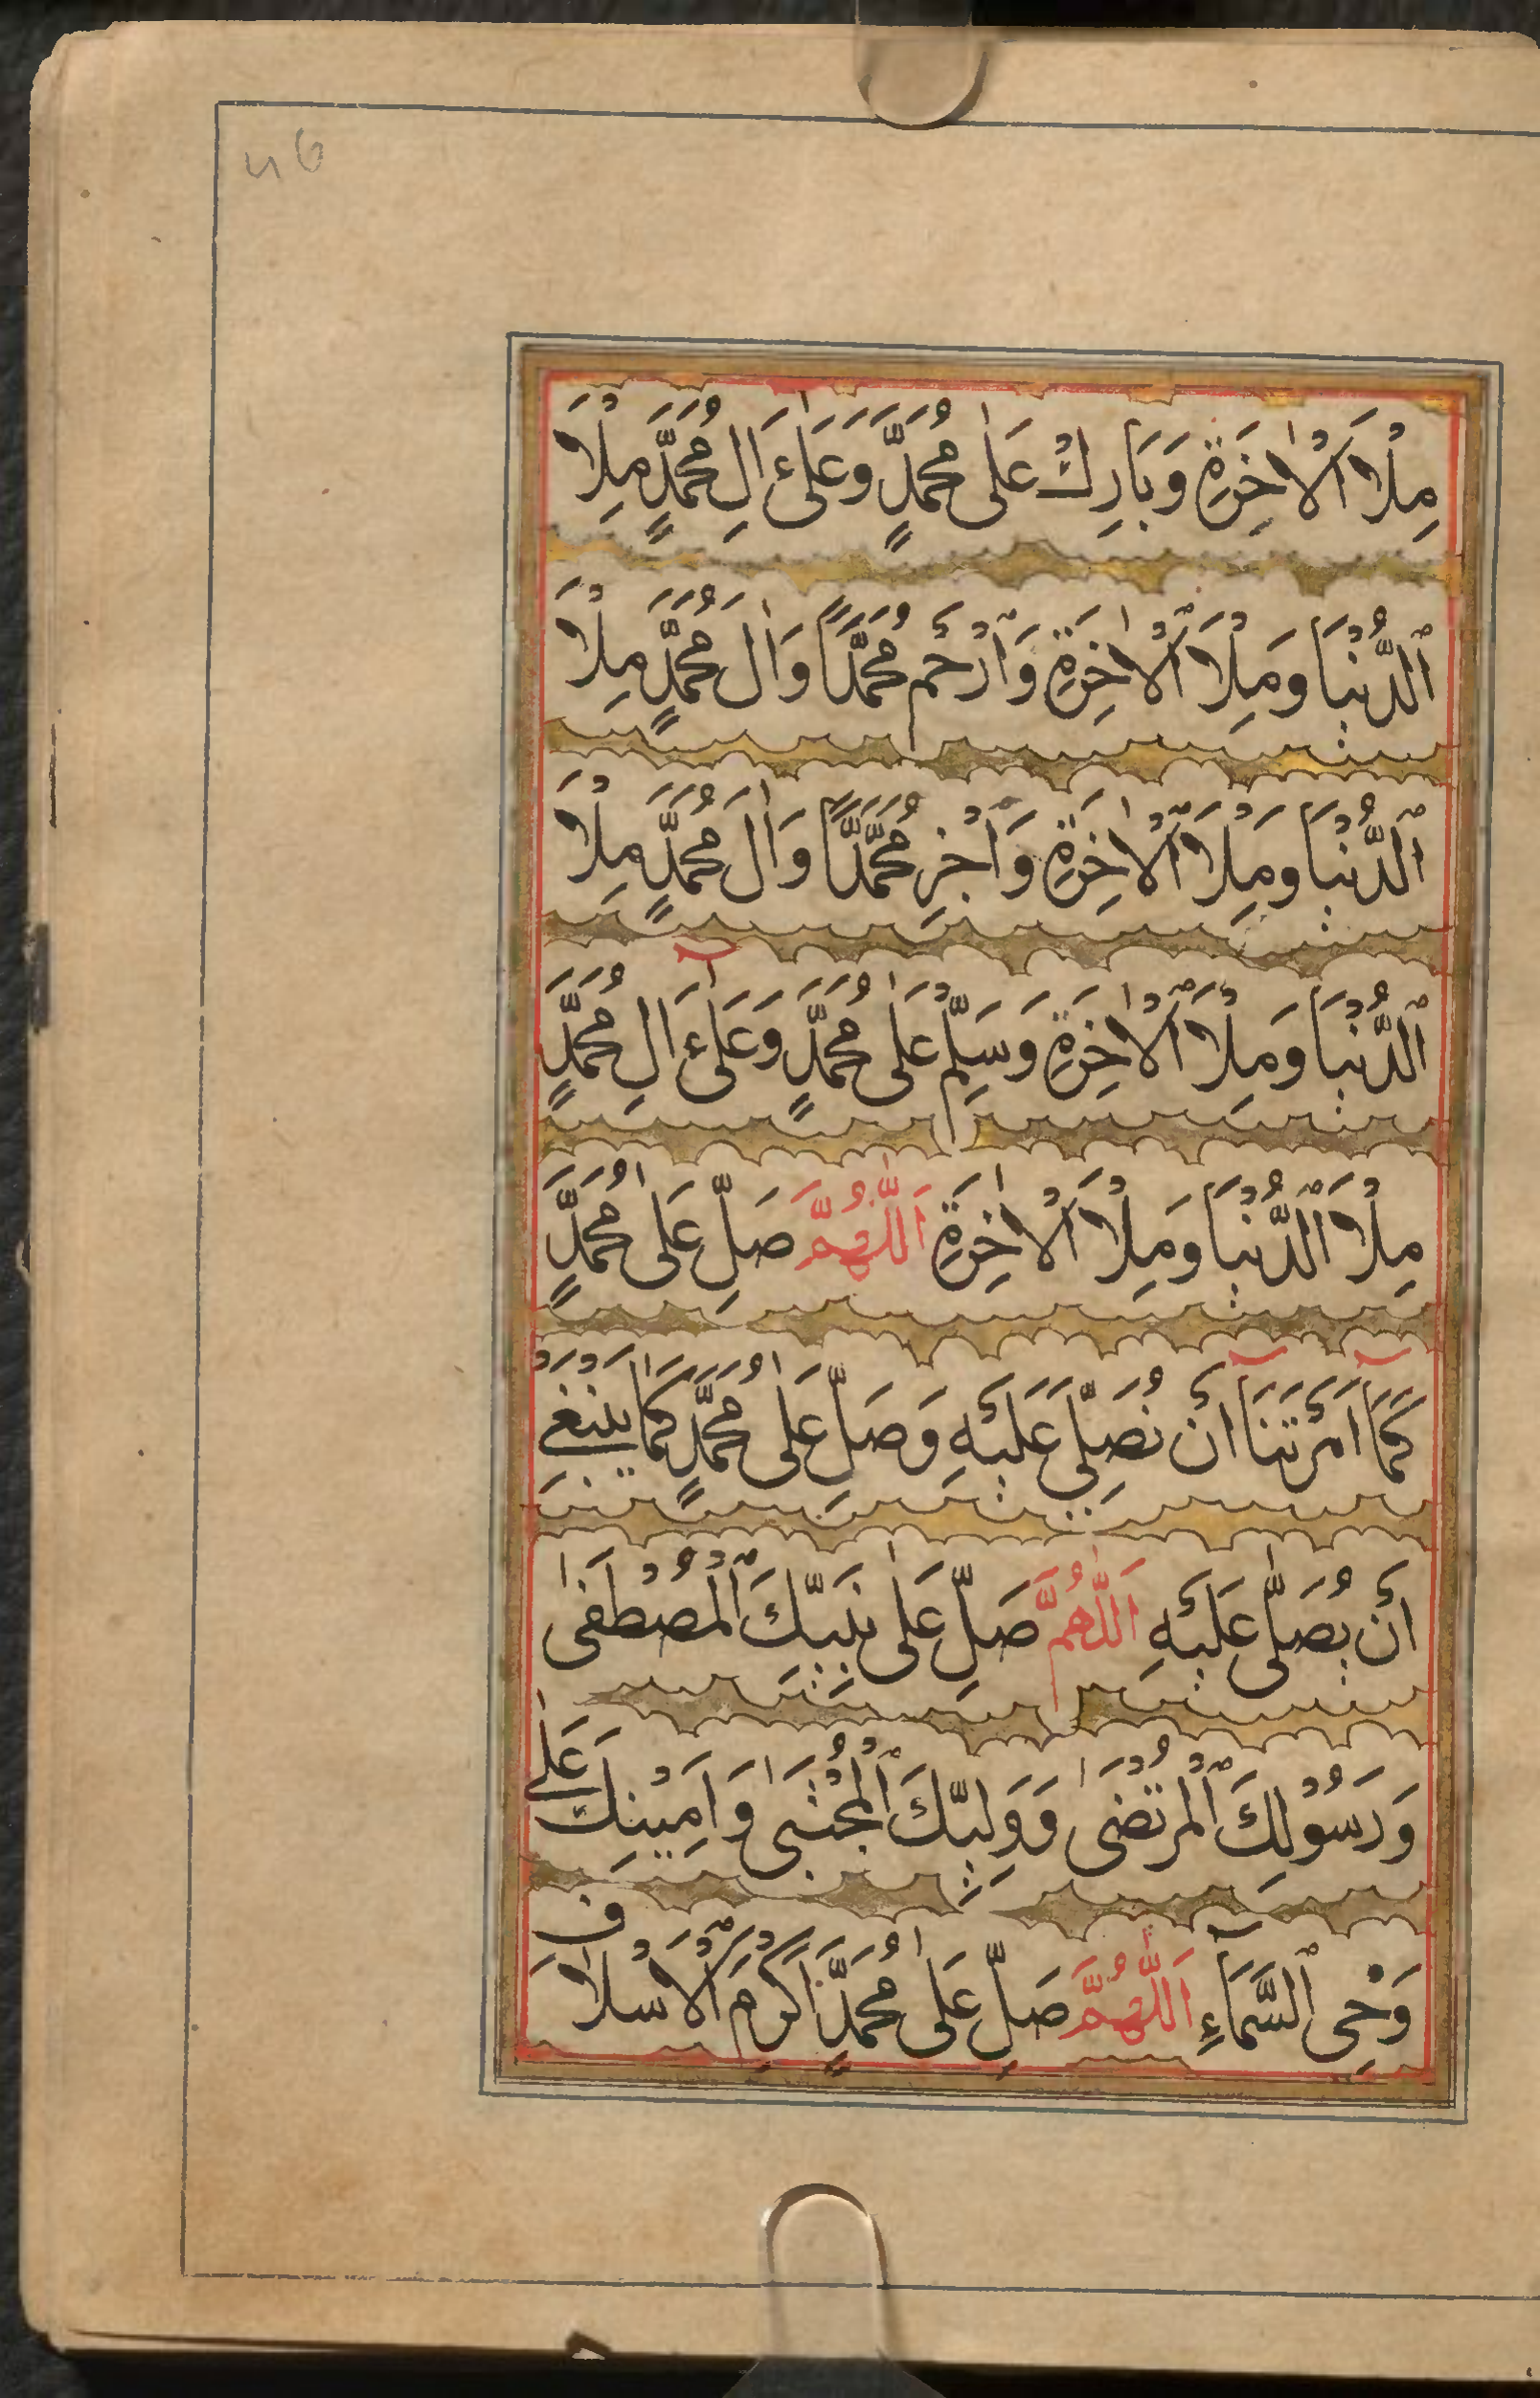 46
مِلْاَ الْاٰخِرَةِ وَبَارِكْ عَلٰى مُحَمَّدٍ وَعَلٰى اٰلِ مُحَمَّدٍ مِلْاَ
ٱلدُّنْيَا وَمِلْاَ ٱلْاٰخِرَةِ وَٱرْحَمْ مُحَمَّدًا وَاٰلَ مُحَمَّدٍ مِلْاَ
ٱلدُّنْيَا وَمِلْاَ ٱلْاٰخِرَةِ وَٱجْزِ مُحَمَّدًا وَاٰلَ مُحَمَّدٍ مِلْاَ
ٱلدُّنْيَا وَمِلْاَ ٱلْاٰخِرَةِ وَسَلِّمْ عَلٰى مُحَمَّدٍ وَعَلٰٓى اٰلِ مُحَمَّدٍ
مِلْاَ ٱلدُّنْيَا وَمِلْاَ الْاٰخِرَةِ اَللّٰهُمَّ صَلِّ عَلٰى مُحَمَّدٍ
كَمَآ اَمَرْتَنَآ اَنْ نُصَلِّيَ عَلَيْهِ وَصَلِّ عَلٰى مُحَمَّدٍ كَمَا يَنْبَغِي
اَنْ يُصَلّٰى عَلَيْهِ اَللّٰهُمَّ صَلِّ عَلٰى نَبِيِّكَ ٱلْمُصْطَفٰى
وَرَسُوْلِكَ ٱلْمُرْتَضٰى وَوَلِيِّكَ ٱلْمُجْتَبٰى وَاَمِيْنِكَ عَلٰى
وَحْيِ ٱلسَّمَآءِ اَللّٰهُمَّ صَلِّ عَلٰى مُحَمَّدٍ اَكْرَمِ ٱلْاَسْلَافِ